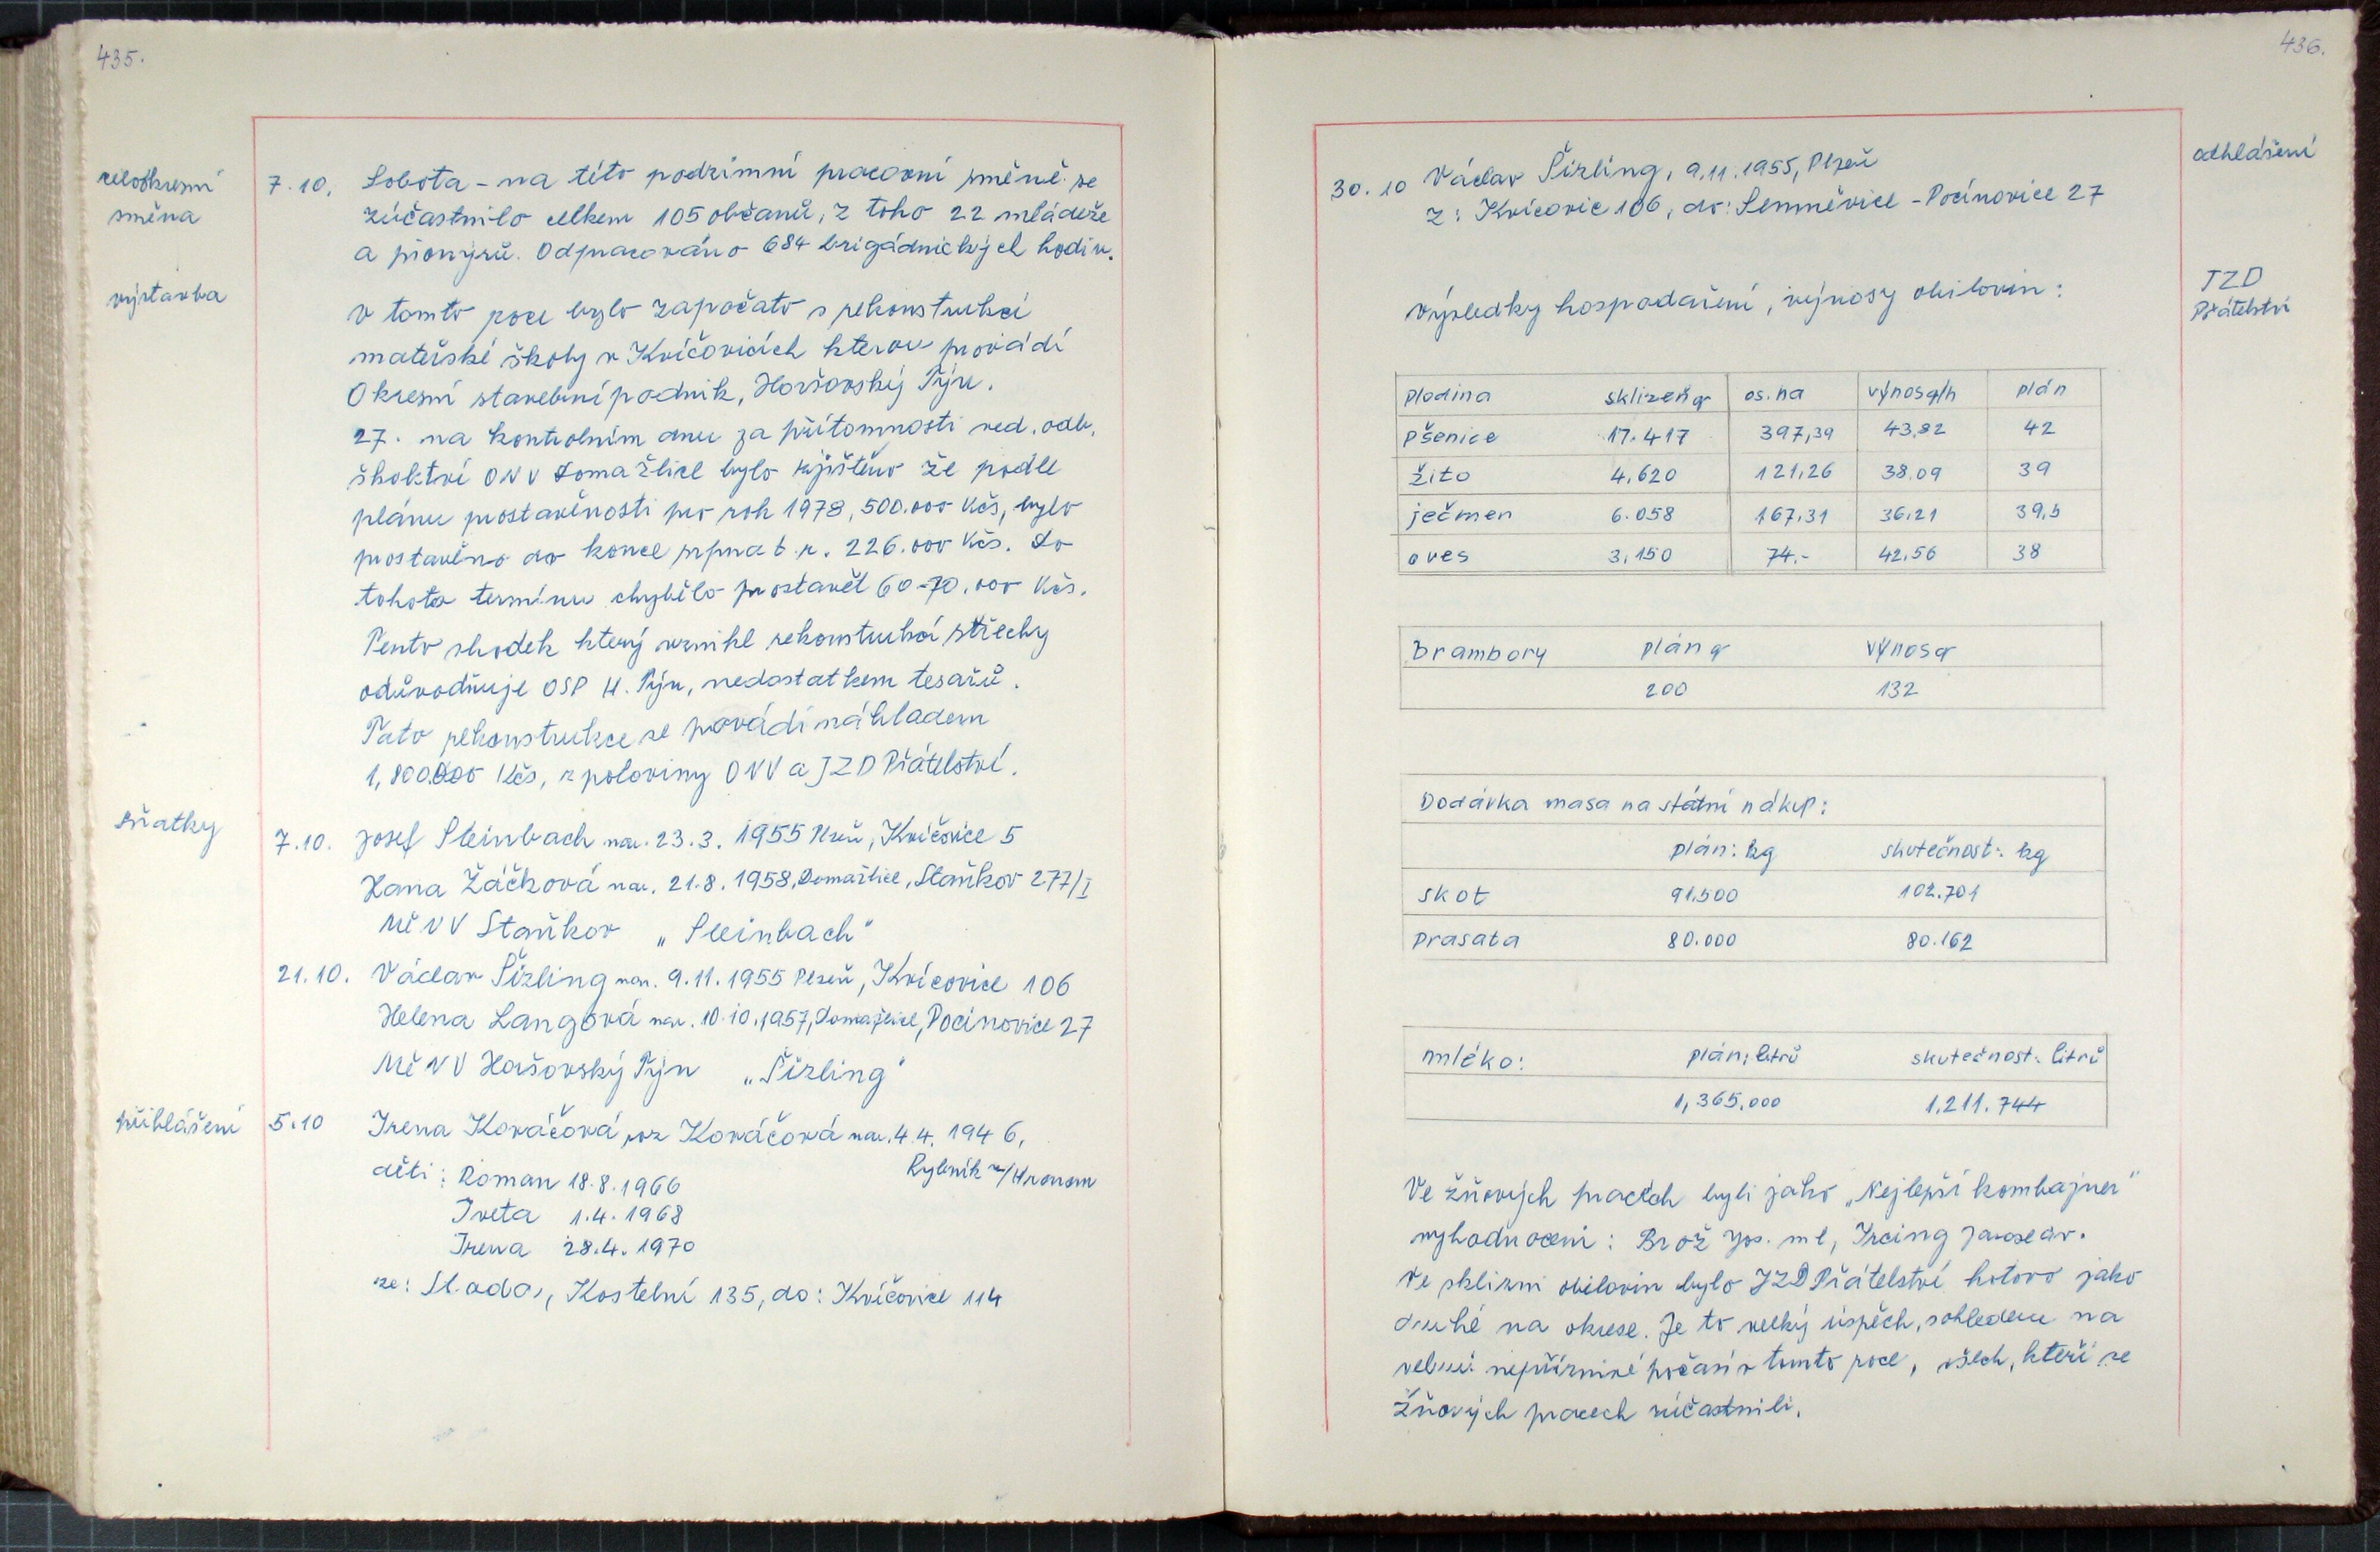 435.
celookresní
směna
7.10. Sobota - na této podzimní pracovní směně se
zúčastnilo celkem 105 občanů, z toho 22 mládeže
a pionýrů. Odpracováno 684 brigádnických hodin.
výstavba
V tomto roce bylo započato s rekonstrukcí
mateřské školy v Kvíčovicích kterou provádí
Okresní stavební podnik, Horšovský Týn.
27. na kontrolním dnu za přítomnosti ved. odb.
školství ONV Domažlice bylo zjištěno že podle
plánu prostavěnosti pro rok 1978, 500.000 Kčs, bylo
prostavěno do konce srpna t.r. 226.000 Kčs. Do
tohoto termínu chybělo prostavět 60-70.000 Kčs.
Tento skodek který vznikl rekonstrukcí střechy
odůvodňuje OSP H. Týn, nedostatkem tesařů.
Tato rekonstrukce se provádí nákladem
1,800.000 Kčs, z poloviny ONV a JZD Přátelství.
sňatky
7.10. Josef Steinbach nar. 23.3. 1955 Plzeň, Kvíčovice 5
Hana Žáčková nar. 21.8. 1958, Domažlice, Staňkov 277/I
MěNV Staňkov „Steinbach"
21.10. Václav Šizling nar. 9.11.1955 Plzeň, Kvícovice 106
Helena Langová nar. 10.10.1957, Domažlice, Pocinovice 27
MěNV Hašovský Týn „Šizling"
přihlášení
5.10 Irena Kováčová roz Kováčová nar. 4.4. 1946,
Rybník n/Hronom
děti: Roman 18.8.1966
Iveta 1.4.1968
Irena 28.4.1970
ze: Kostelní 135, do: Kvíčovice 114
436.
odhlášení
30.10 Václav Šizling, 9.11.1955, Plzeň
z: Kvícovic 106, do: Semněvice - Pocínovice 27
JZD
Přátelství
Výsledky hospodaření, výnosy obilovin:
plodina sklizeň q os. ha výnos q/h plán
pšenice 17.417 397,39 43,82 42
žito 4.620 121,26 38.09 39
ječmen 6.058 167.31 36.21 39,5
oves 3.150 74.- 42.56 38
brambory plán q výnos q
200 132
Dodávka masa na státní nákup:
plán: kg skutečnost: kg
skot 91.500 102.701
prasata 80.000 80.162
mléko: plán: litrů skutečnost: litrů
1,365.000 1.211.744
Ve žňových pracích byli jako „Nejlepší kombajner"
vyhodnoceni: Brož Jos. ml, Ircing Jarosav.
Ve sklizni obilovin bylo JZD Přátelství hotovo jako
druhé na okrese. Je to velký úspěch, sohledem na
velmi nepříznivé počasí v tomto roce, všech, kteří se
žňových pracech zúčastnili.